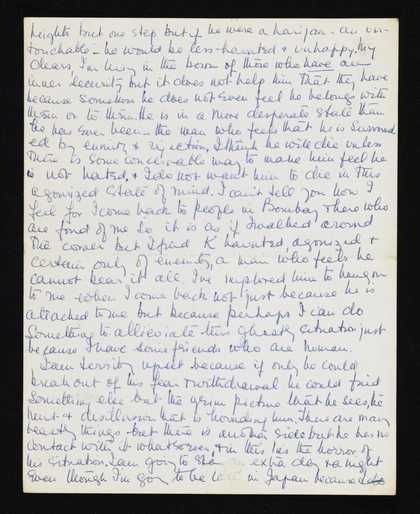 heights but one step but if he were a harijan - an un-
touchable - he would be less haunted & unhappy. My
dears I'm living in the room of those who have an
inner security but it does not help him that they have
because somehow he does not even feel he belongs with
them or to them. He is in a more desperate state than
he has ever been - the man who feels that he is surround
ed by enmity & rejection. I think he will die unless
there is some conceivable way to make him feel he
is not hated, & I do not want him to die in this
agonized state of mind. I can't tell you how I
feel for I come back to people in Bombay & here who
are fond of me so it is as if I walked around
the corner but I find K haunted, agonized &
certain only of enmity, a man who feels he
cannot bear it all. I've implored him to hang on
to me when I come back not just because he is
attached to me but because perhaps I can do
something to alleviate this ghastly situation just
because I have some friends who are human.
I am terribly upset because if only he could
break out of his fear & withdrawal he could find
something else but the grim picture that he sees, the
hurt & disillusion that is hounding him. There are many
beastly things but there is another side but he has no
contact with it whatsoever, & in this lies the horror of
his situation. I am going to stay an extra day & a night
even though I'm going to be late in Japan because